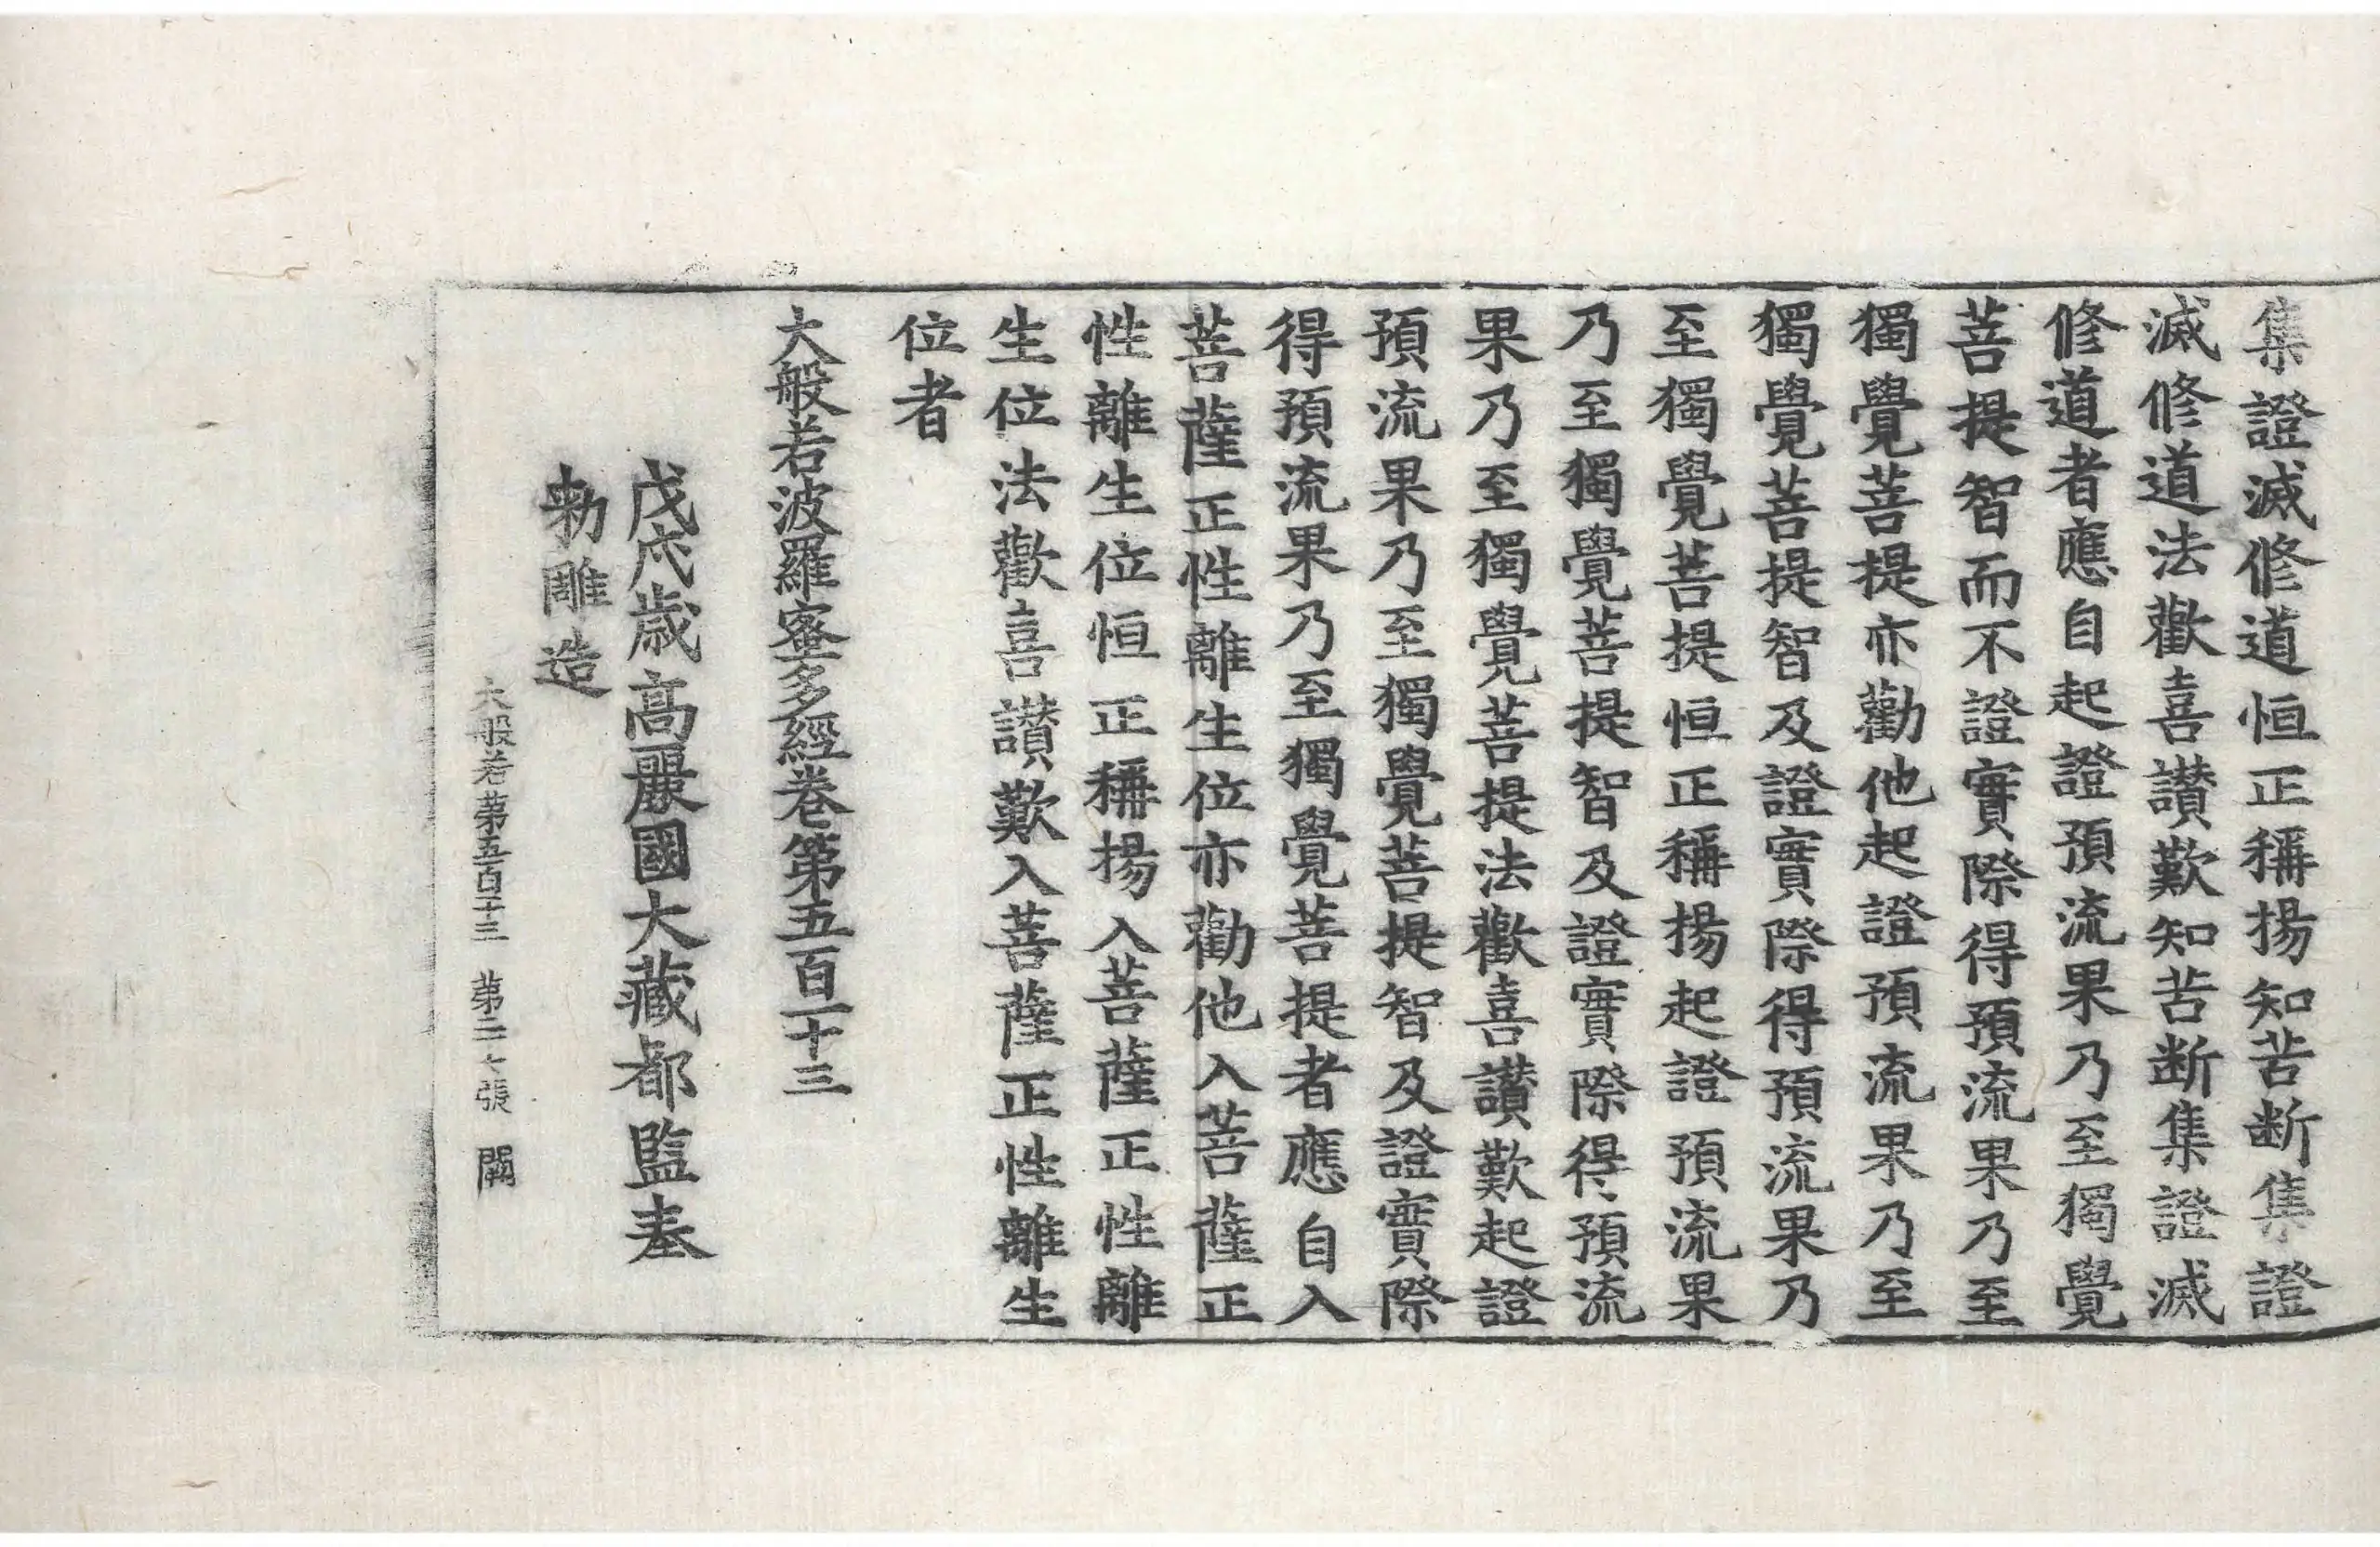 集證滅修道恒正稱揚知苦斷集證
滅修道法歡喜讃歎知苦斷集證滅
修道者應自起證預流果乃至獨覺
菩提智而不證實際得預流果乃至
獨覺菩提亦勸他起證預流果乃至
獨覺菩提智及證實際得預流果乃
至獨覺菩提恒正稱揚起證預流果
乃至獨覺菩提智及證實際得預流
果乃至獨覺菩提法歡喜讃歎起證
預流果乃至獨覺菩提智及證實際
得預流果乃至獨覺菩提者應自入
菩薩正性離生位亦勸他入菩薩正
性離生位恒正稱揚入菩薩正性離
生位法歡喜讃歎入菩薩正性離生
位者
大般若波羅蜜多經卷第五百一十三
戊戌歲高麗國大藏都監奉
勅雕造
大般若第五百十三 第二十張 闕